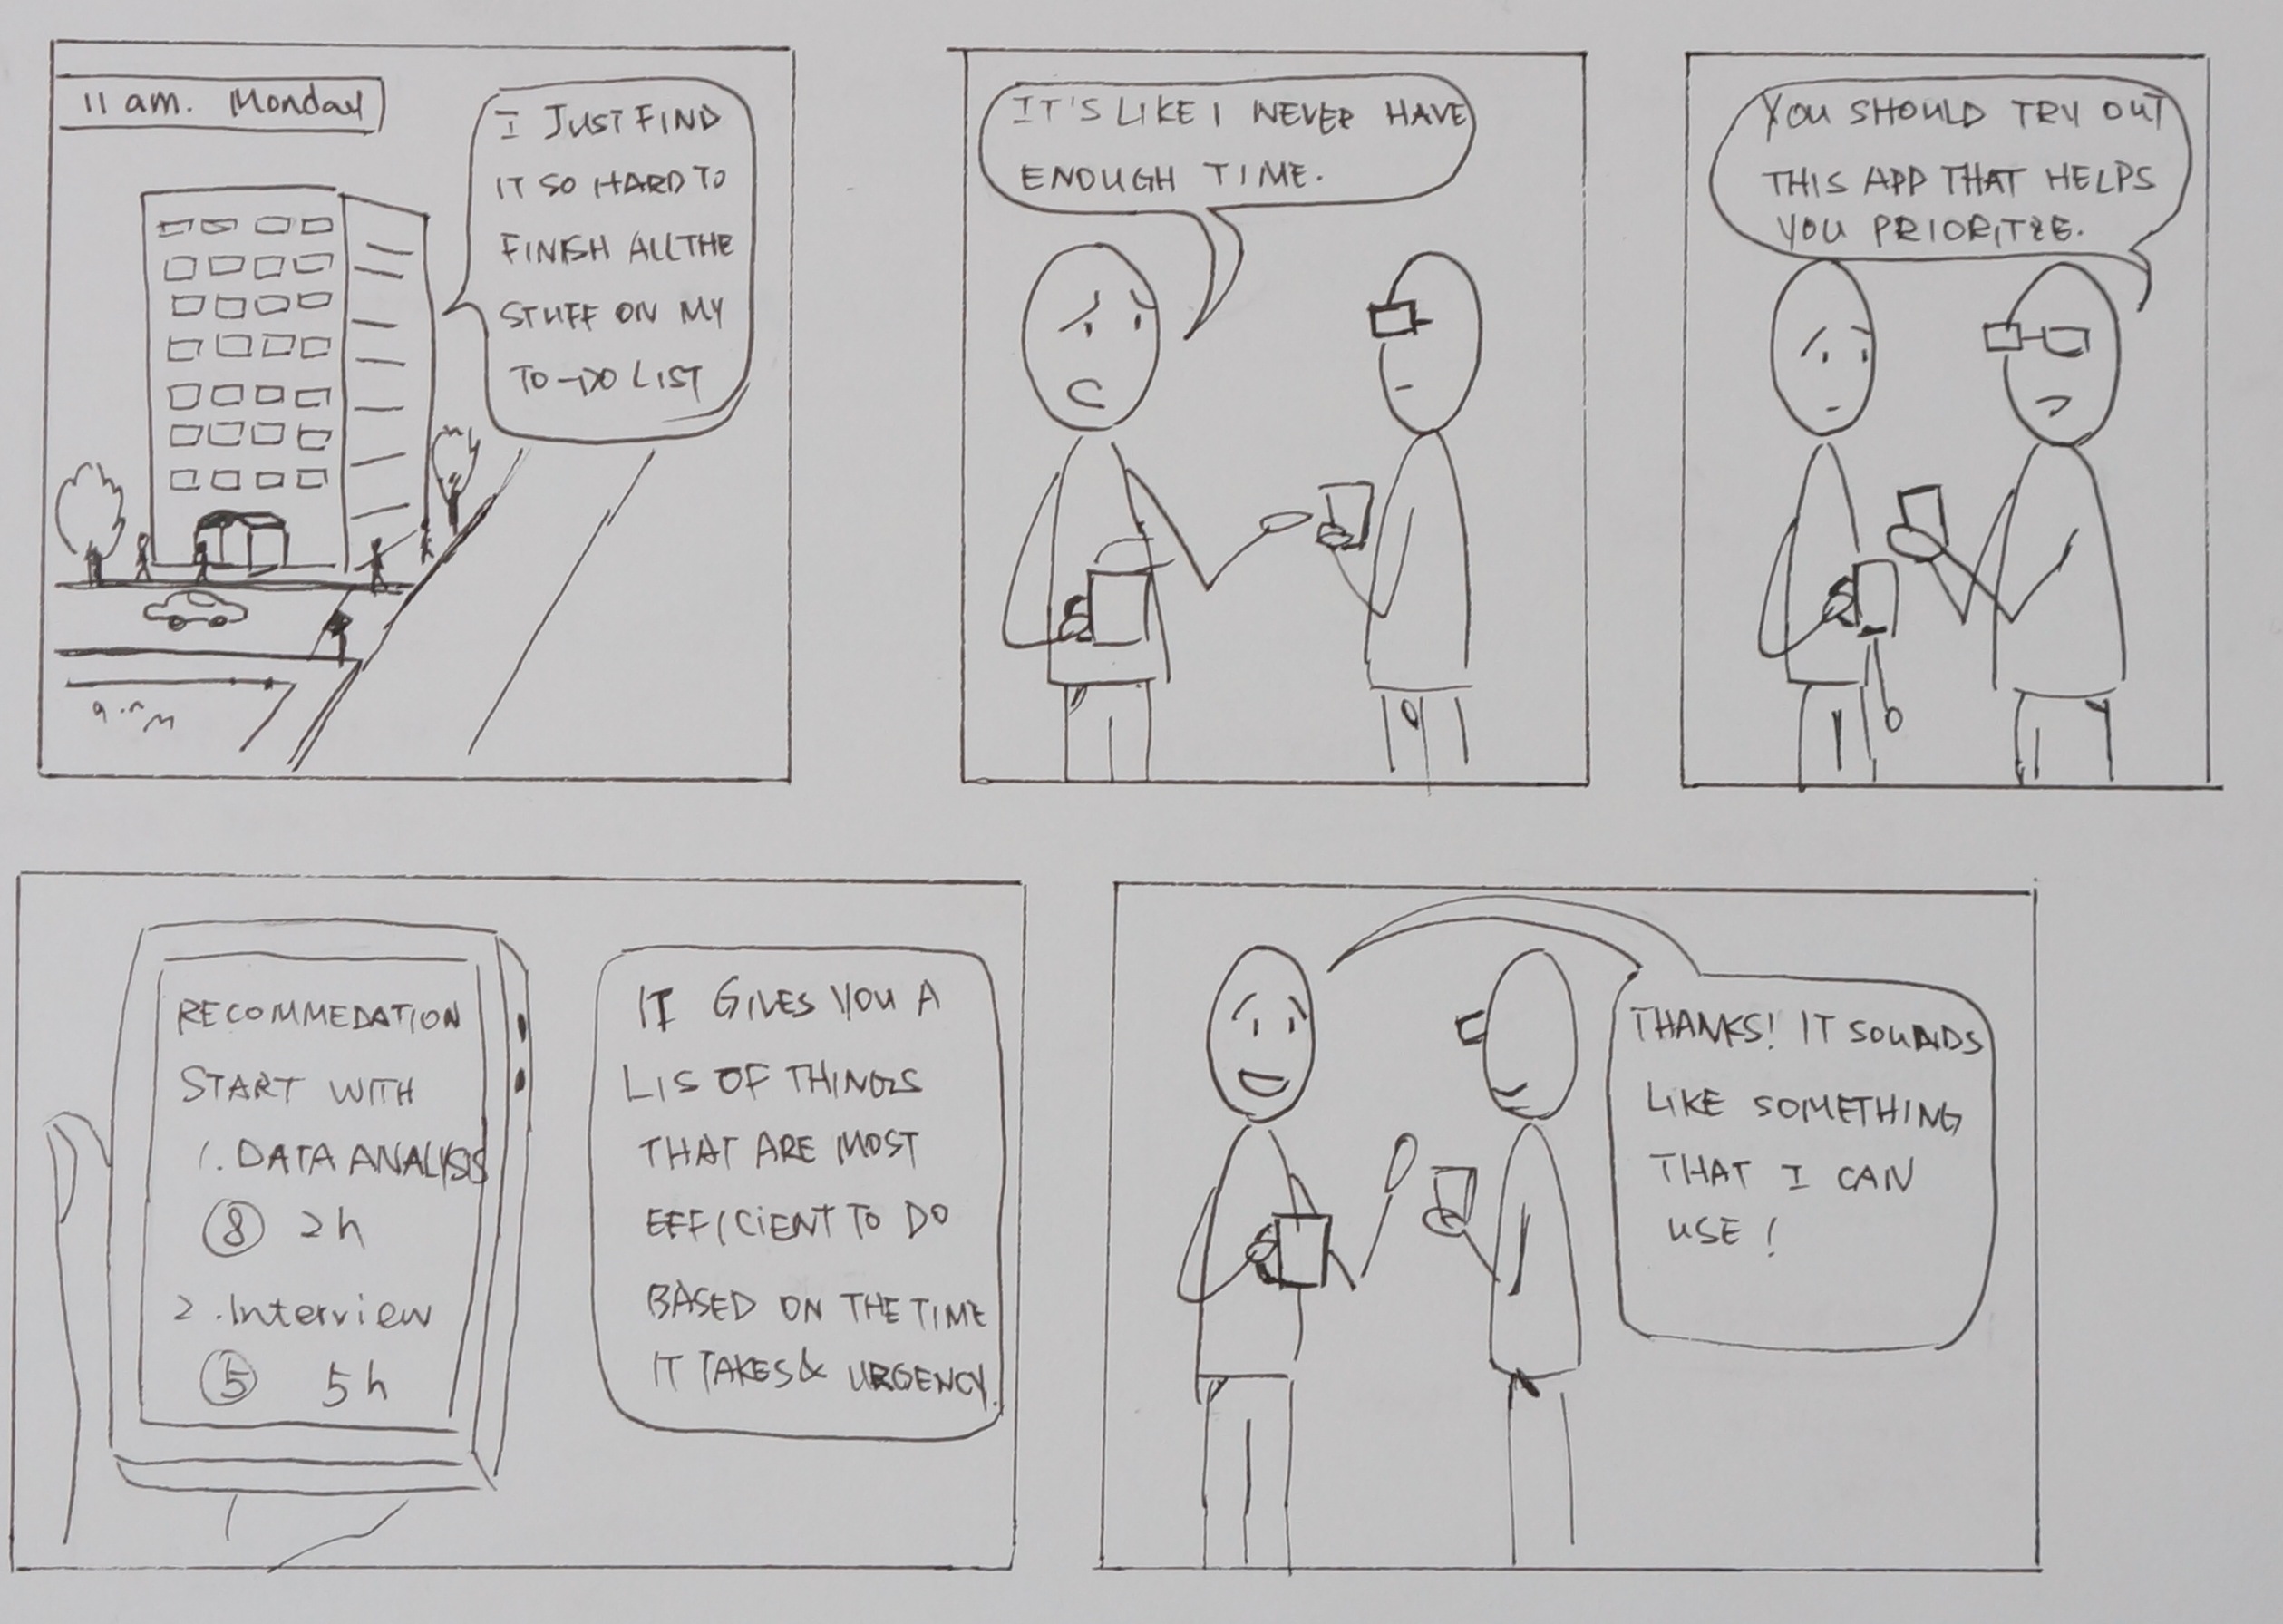 11 am. Monday
I JUST FIND
IT SO HARD TO
FINISH ALL THE
STUFF ON MY
TO-DO LIST
IT'S LIKE I NEVER HAVE
ENOUGH TIME.
YOU SHOULD TRY OUT
THIS APP THAT HELPS
YOU PRIORITZE.
RECOMMEDATION
START WITH
1. DATA ANALYSIS
8 2h
2. Interview
5 5h
IT GIVES YOU A
LIS OF THINGS
THAT ARE MOST
EFFICIENT TO DO
BASED ON THE TIME
IT TAKES & URGENCY.
THANKS! IT SOUNDS
LIKE SOMETHING
THAT I CAN
USE!